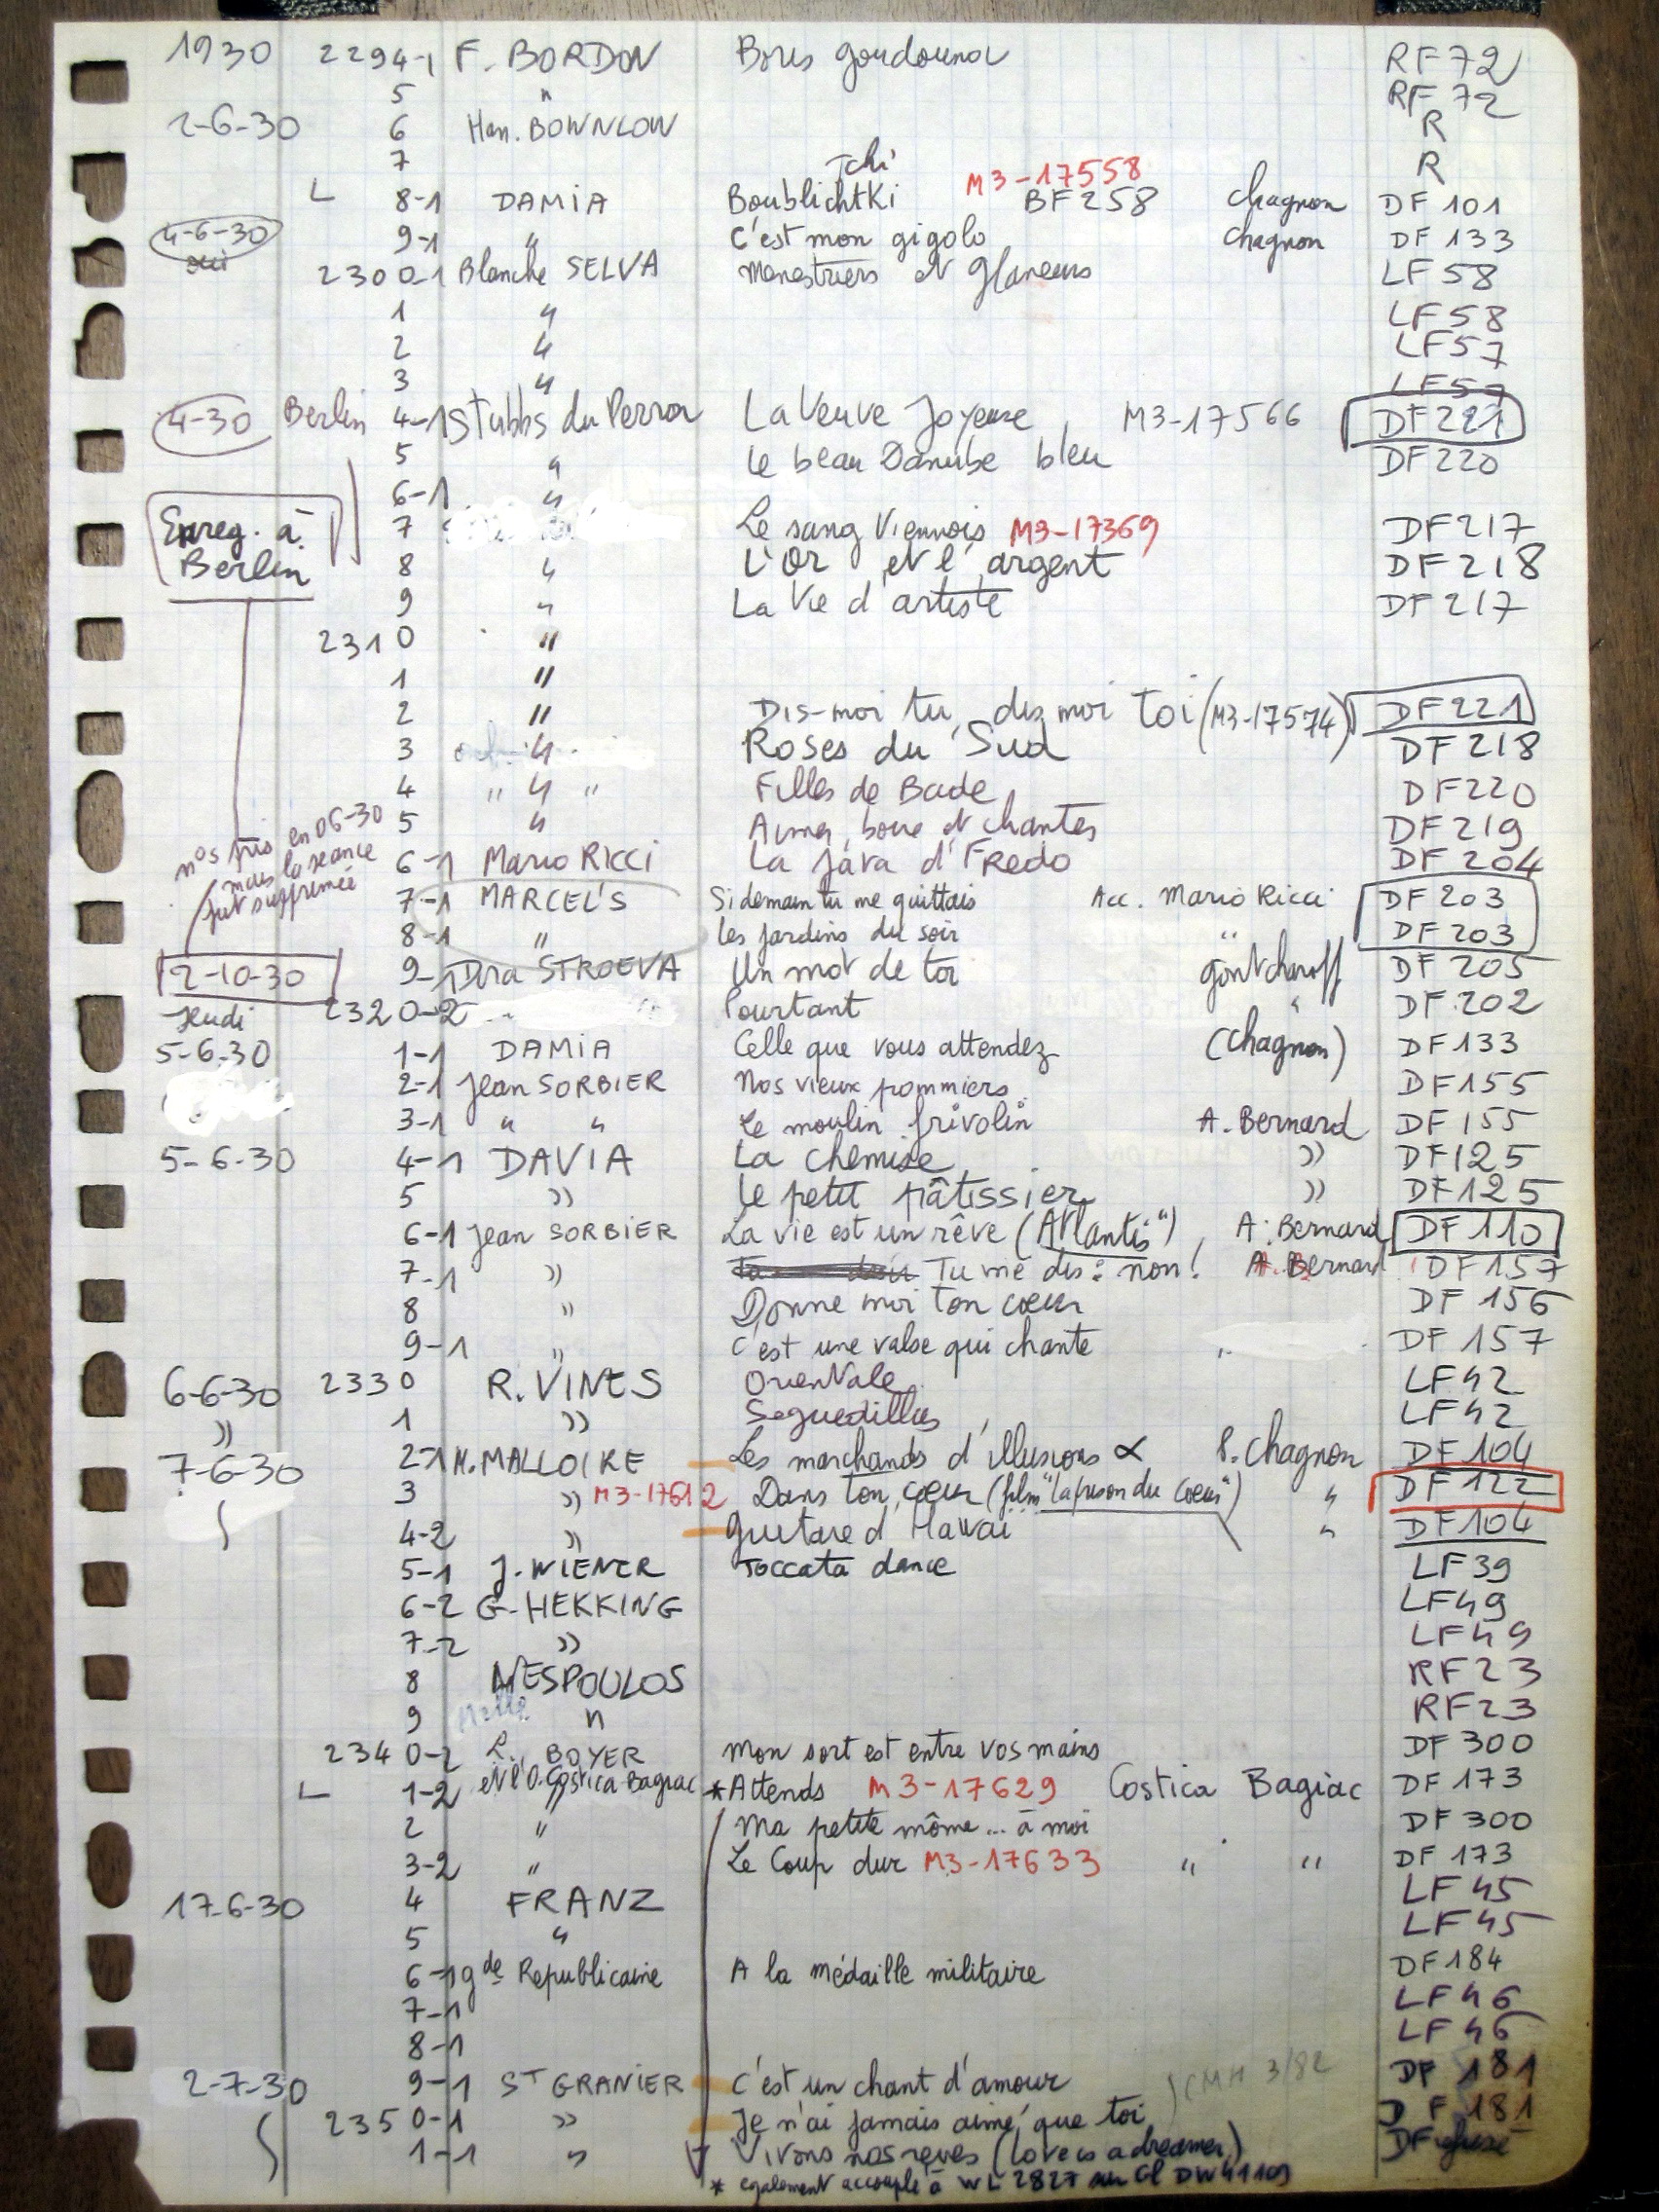 1930 2294-1 F. BORDON Boris goudounov RF 72
5 " RF 72
2-6-30 6 Han. BOWNLOW R
7 R
Tchi M3-17558
8-1 DAMIA BoublichtKi BF 258 Chagnon DF 101
4-6-30 9-1 " C'est mon gigolo Chagnon DF 133
2300-1 Blanche SELVA Menestriers et glaneurs LF 58
1 " LF 58
2 " LF 57
3 " LF 57
4-30 Berlin 4-1 Stubbs du Perron La Veuve Joyeuse M3-17566 DF 221
5 " Le beau Danube bleu DF 220
6-1 "
Enreg. à 7 Le sang Viennois M3-17369 DF 217
Berlin 8 " L'Or et l'argent DF 218
9 " La Vie d'artiste DF 217
2310 "
1 "
2 " Dis-moi tu, dis moi toi (M3-17574) DF 221
3 " Roses du Sud DF 218
4 " " " Filles de Bade DF 220
5 " Aimer, boire et chanter DF 219
nos pris en 06-30
mais la séance
fut supprimée
6-1 Mario RICCI La java d'Fredo DF 204
7-1 MARCEL'S Si demain tu me quittais Acc. Mario Ricci DF 203
8-1 " Les jardins du soir " DF 203
2-10-30 9-1 Dora STROEVA Un mot de toi gontcharoff DF 205
Jeudi 2320-2 Pourtant " DF 202
5-6-30 1-1 DAMIA Celle que vous attendez (Chagnon) DF 133
2-1 Jean SORBIER Nos vieux pommiers DF 155
3-1 " " Le moulin frivolin A. Bernard DF 155
5-6-30 4-1 DAVIA La chemise )) DF 125
5 )) Le petit pâtissier )) DF 125
6-1 Jean SORBIER La vie est un rêve ("Atlantis") A. Bernard DF 110
7-1 )) Tu me dis : non ! A. Bernard DF 157
8 )) Donne moi ton cœur DF 156
9-1 )) C'est une valse qui chante DF 157
6-6-30 2330 R. VINES Orientale LF 42
)) 1 )) Seguedillas LF 42
7-6-30 2-1 H. MALLOIRE Les marchands d'illusions P. Chagnon DF 104
3 )) M3-17612 Dans ton cœur (film "la prison du Cœur") " DF 122
4-2 )) guitare d'Hawaï " DF 104
5-1 J. WIENER Toccata dance LF 39
6-2 G. HEKKING LF 49
7-2 )) LF 49
8 NESPOULOS RF 23
9 " RF 23
2340-2 L. BOYER Mon sort est entre vos mains DF 300
1-2 et l'O. Costica Bagiac * Attends M3-17629 Costica Bagiac DF 173
2 " Ma petite môme... à moi DF 300
3-2 " Le Coup dur M3-17633 " " DF 173
17-6-30 4 FRANZ LF 45
5 " LF 45
6-1 gde Republicaine A la médaille militaire DF 184
7-1 LF 46
8-1 LF 46
2-7-30 9-1 ST GRANIER C'est un chant d'amour (CMH 3/82 DF 181
2350-1 )) Je n'ai jamais aimé que toi DF 181
1-1 " Vivons nos rêves (Love is a dreamer) DF refusé
* egalement accouplé à WL 2827 sur Cl DW 4110g